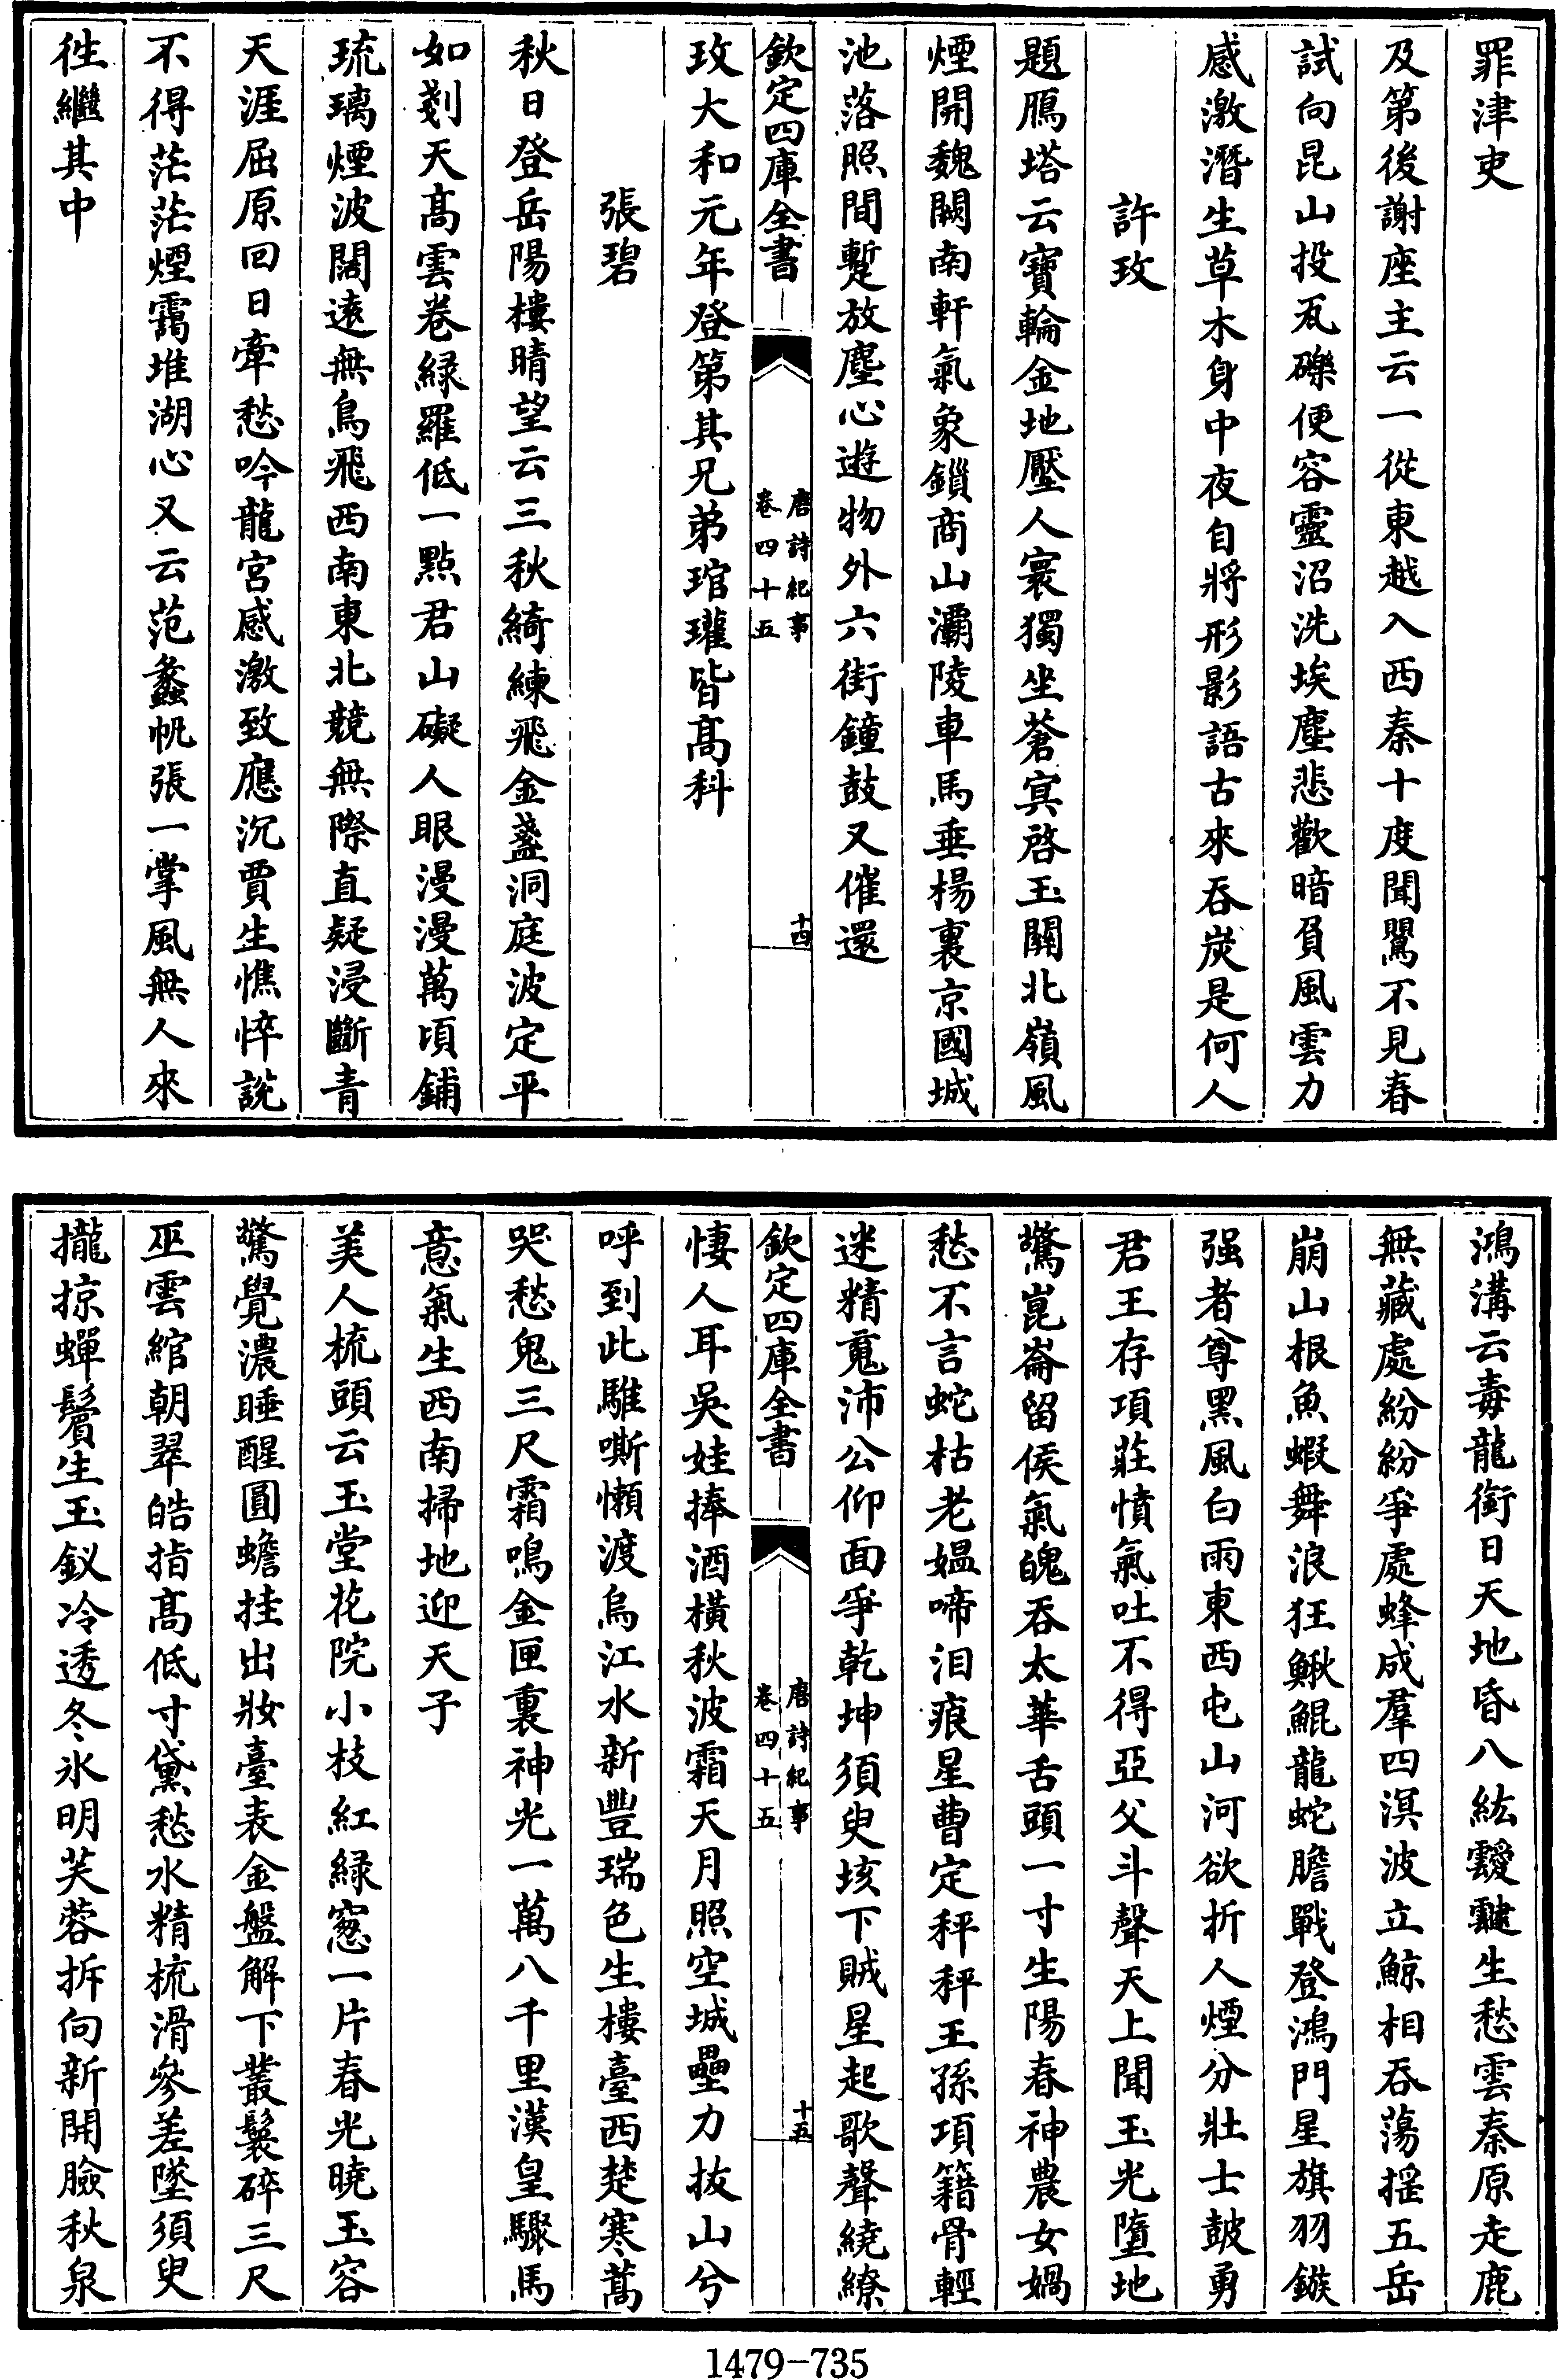 罪津吏
及第後謝座主云一從東越入西秦十度聞鶯不見春
試向昆山投瓦礫便容靈沼洗埃塵悲歡暗負風雲力
感激潛生草木身中夜自將形影語古來吞炭是何人
許玫
題鴈塔云寶輪金地壓人寰獨坐蒼冥啓玉關北嶺風
煙開魏闕南軒氣象鎖商山灞陵車馬垂楊裏京國城
池落照間蹔放塵心遊物外六街鐘鼓又催還
欽定四庫全書
唐詩紀事
卷四十五
十四
玫大和元年登第其兄弟琯瓘皆髙科
張碧
秋日登岳陽樓晴望云三秋綺練飛金盞洞庭波定平
如剗天髙雲卷緑羅低一點君山礙人眼漫漫萬頃鋪
琉璃煙波闊遠無鳥飛西南東北競無際直疑浸斷青
天涯屈原回日牽愁吟龍宫感激致應沉賈生憔悴說
不得茫茫煙靄堆湖心又云范蠡帆張一掌風無人來
徃繼其中
鴻溝云毒龍銜日天地昏八紘靉靆生愁雲秦原走鹿
無藏處紛紛爭處蜂成羣四溟波立鯨相吞蕩揺五岳
崩山根魚蝦舞浪狂鰍鯤龍蛇膽戰登鴻門星旗羽鏃
强者尊黑風白雨東西屯山河欲折人煙分壯士皷勇
君王存項莊憤氣吐不得亞父斗聲天上聞玉光墮地
驚崑崙留侯氣魄吞太華舌頭一寸生陽春神農女媧
愁不言蛇枯老媼啼泪痕星曹定秤秤王孫項籍骨輕
迷精䰟沛公仰面爭乾坤須臾垓下賊星起歌聲繞繚
欽定四庫全書
唐詩紀事
卷四十五
十五
悽人耳吳娃捧酒橫秋波霜天月照空城壘力拔山兮
呼到此騅嘶懶渡烏江水新豐瑞色生樓臺西楚寒蒿
哭愁鬼三尺霜鳴金匣裏神光一萬八千里漢皇驟馬
意氣生西南掃地迎天子
美人梳頭云玉堂花院小枝紅緑窻一片春光曉玉容
驚覺濃睡醒圓蟾挂出妝臺表金盤解下叢鬟碎三尺
巫雲綰朝翠皓指髙低寸黛愁水精梳滑參差墜須臾
攏掠蟬鬢生玉釵冷透冬氷明芙蓉拆向新開臉秋泉
1479-735